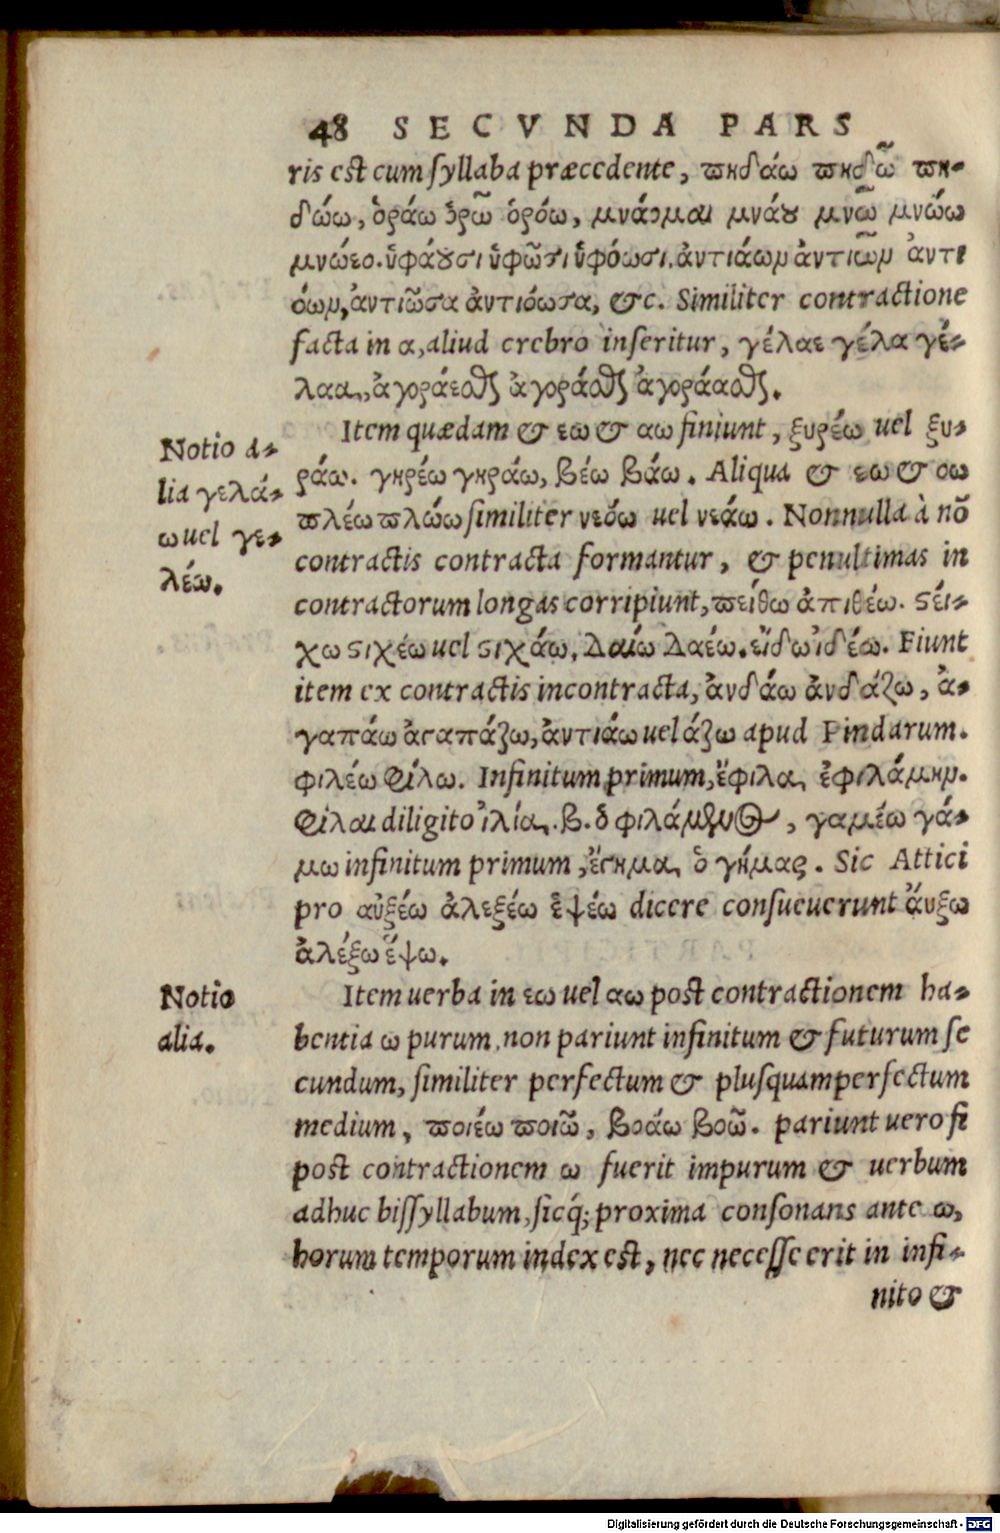 48 SECVNDA PARS
ris est cum syllaba præcedente, πηδάω πηδῶ πη-
δώω, ὁράω ὁρῶ ὁρόω, μνάομαι μνάου μνῶ μνώω
μνώεο. ὑφάουσι ὑφῶσι ὑφόωσι. ἀντιάων ἀντιῶν ἀντι
όων, ἀντιῶσα ἀντιόωσα, &c. Similiter contractione
facta in α, aliud crebro inseritur, γέλαε γέλα γέ-
λαα, ἀγοράεσθαι ἀγοράσθαι ἀγοράασθαι.
Item quædam & εω & αω finiunt, ξυρέω uel ξυ-
ράω. γηρέω γηράω, βέω βάω. Aliqua & εω & οω
πλέω πλώω similiter νεόω uel νεάω. Nonnulla à nō
contractis contracta formantur, & penultimas in
contractorum longas corripiunt, πείθω ἀπιθέω. στέι-
χω στιχέω uel στιχάω, Δαίω Δαέω. εἴδω ἰδέω. Fiunt
item ex contractis incontracta, ἀνδάω ἀνδάζω, ἀ-
γαπάω ἀγαπάζω, ἀντιάω uel άζω apud Pindarum.
φιλέω φίλω. Infinitum primum, ἔφιλα, ἐφιλάμην.
φίλαι diligito ἰλία. β. ὁ φιλάμενος, γαμέω γά-
μω infinitum primum, ἔγημα, ὁ γήμας. Sic Attici
pro αὐξέω ἀλεξέω ἑψέω dicere consueuerunt ἄυξω
ἀλέξω ἕψω.
Item uerba in εω uel αω post contractionem ha-
bentia ω purum, non pariunt infinitum & futurum se
cundum, similiter perfectum & plusquamperfectum
medium, ποιέω ποιῶ, βοάω βοῶ. pariunt uero si
post contractionem ω fuerit impurum & uerbum
adhuc bissyllabum, sicq; proxima consonans ante ω,
horum temporum index est, nec necesse erit in infi-
nito &
Notio a-
lia γελά-
ω uel γε-
λέω.
Notio
alia.
Digitalisierung gefördert durch die Deutsche Forschungsgemeinschaft - DFG